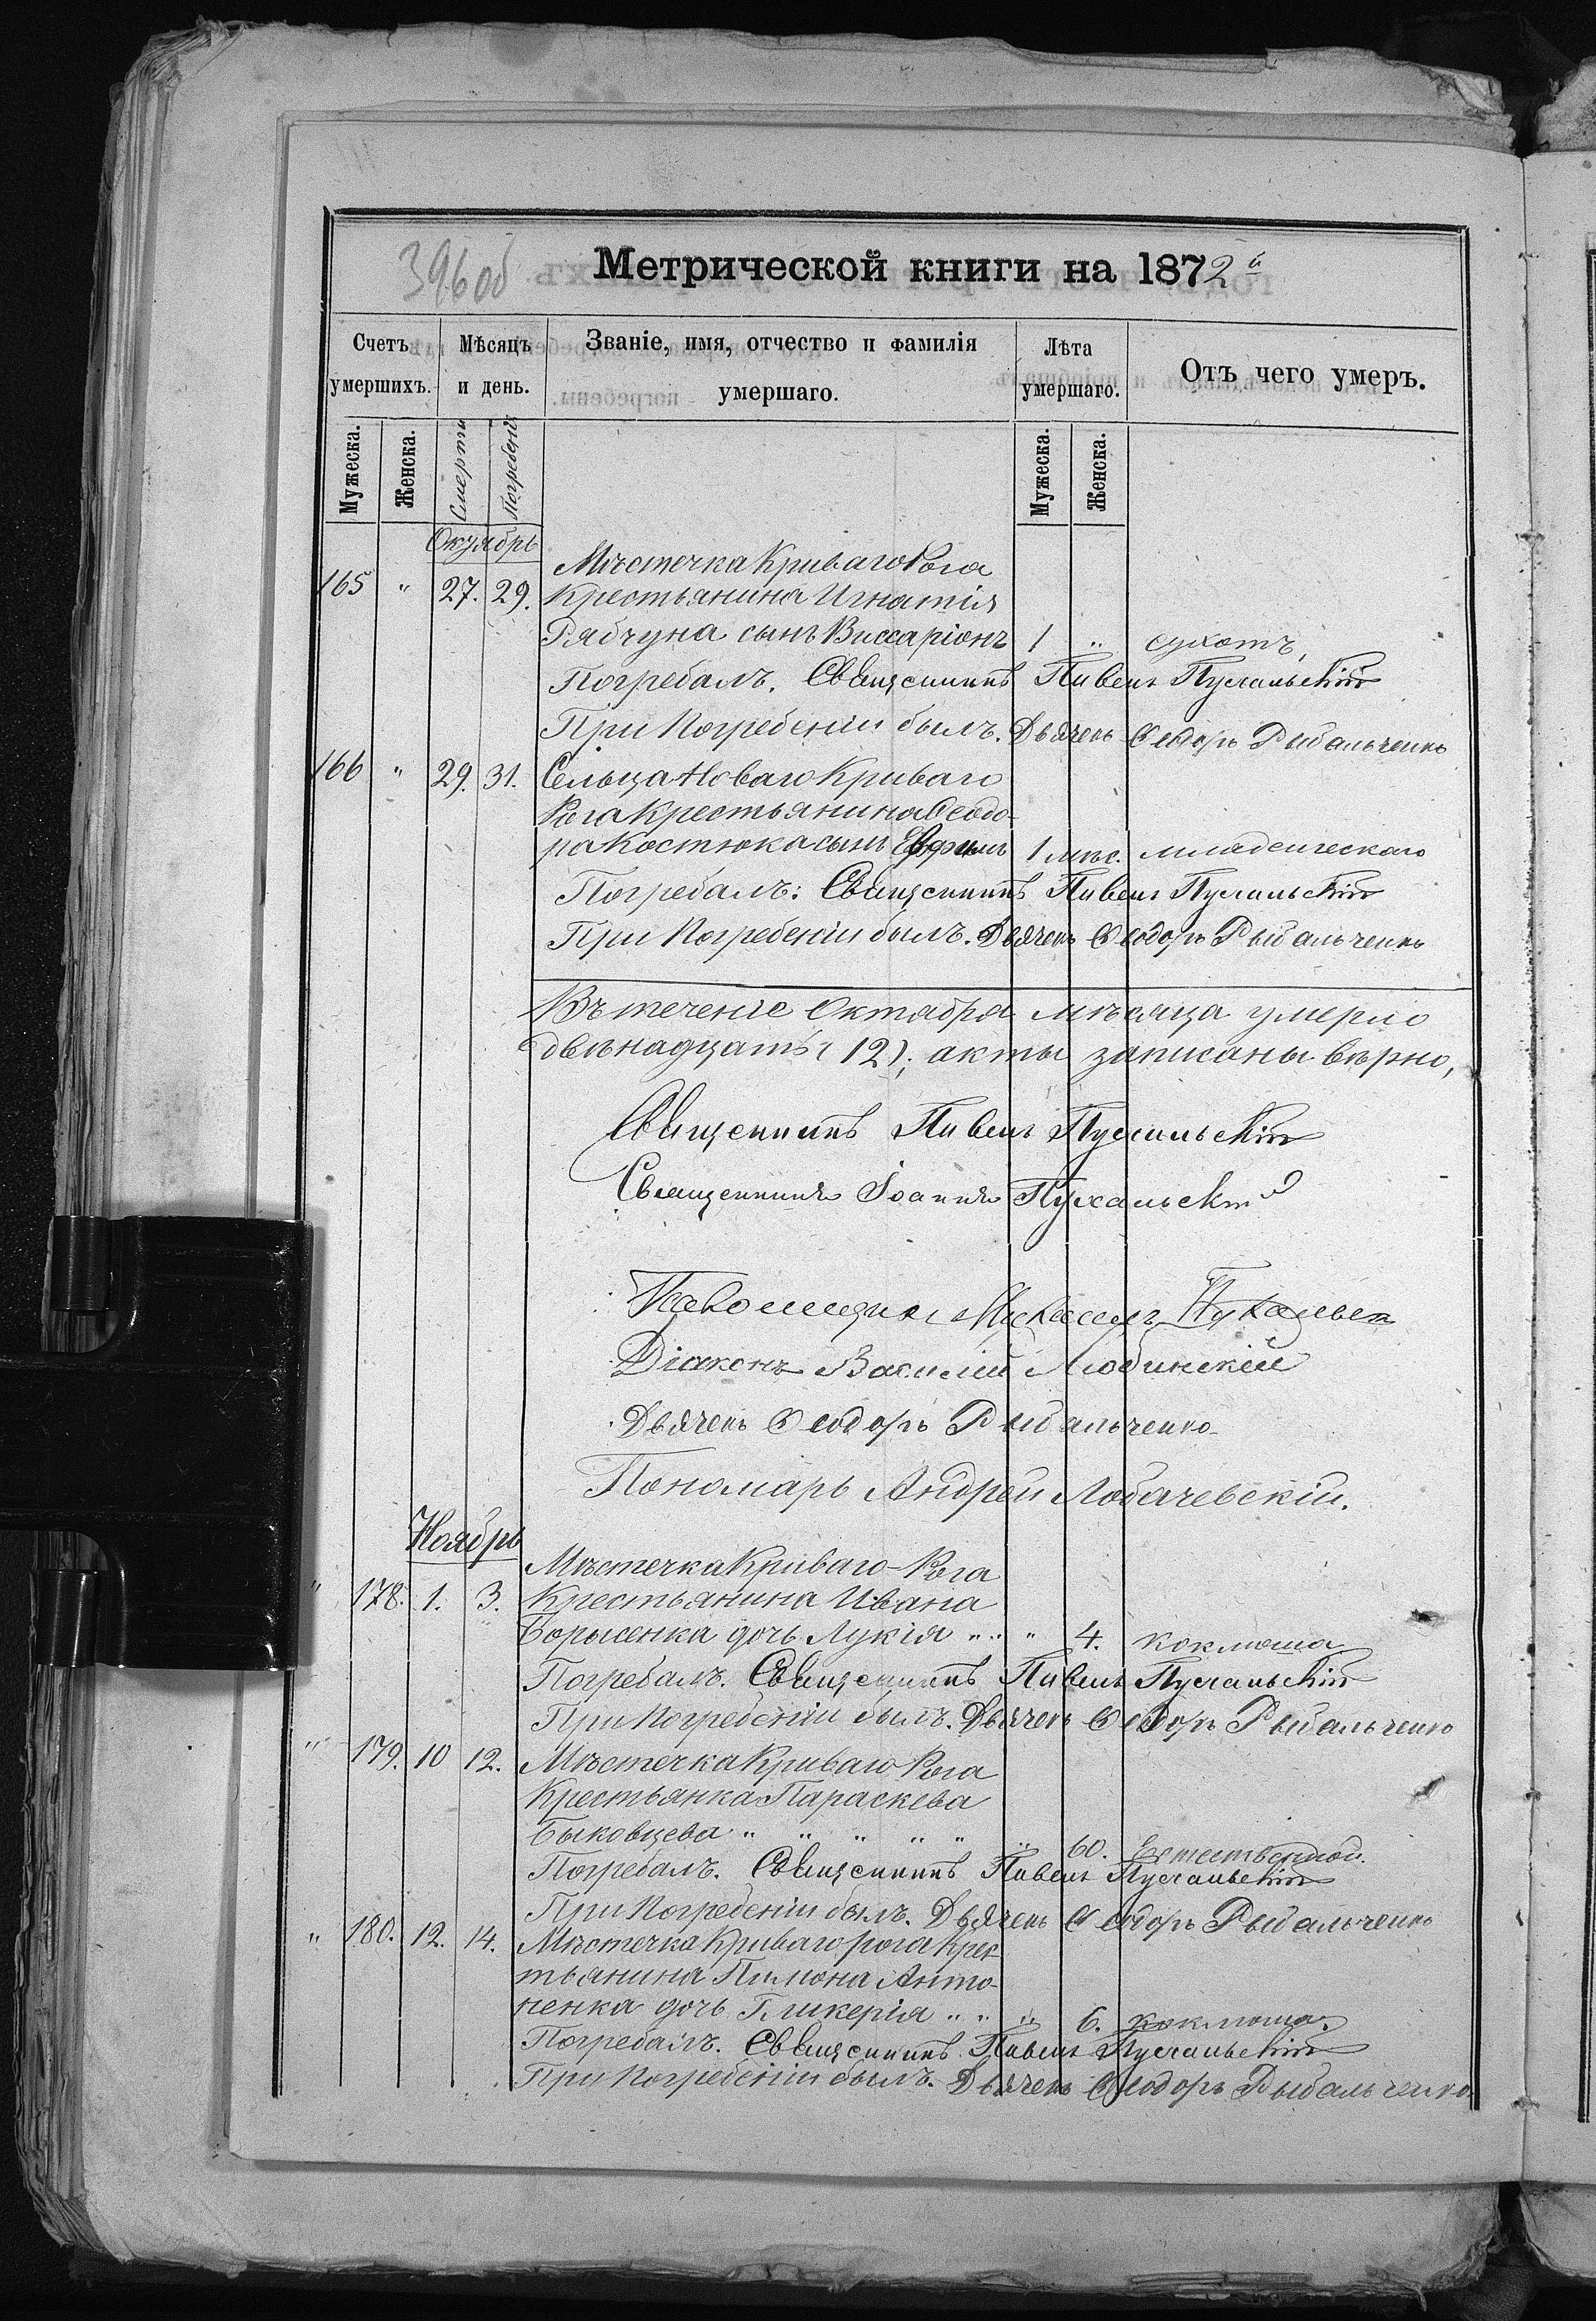 396 об
Метрической книги на 1872й
Счетъ умершихъ.
Мѣсяцъ и день.
Званіе, имя, отчество и фамилія умершаго.
Лѣта умершаго.
Отъ чего умеръ.
Мужеска.
Женска.
Смерти
Погребенія
Мужеска.
Женска.
Октябрь
Мѣстечка Криваго Рога
165 " 27. 29. Крестьянина Игнатія
Рябчуна сынъ Виссаріонъ 1 " сухотъ,
Погребалъ. Священникъ Павелъ Пухальскій
При погребеніи былъ. Дьячекъ Ѳеодоръ Рыбальченко
166 " 29. 31. Сельца Новаго Криваго
Рога Крестьянина Ѳеодо-
ра Костюка сынъ Евфимъ 1 мѣс. младенческаго
Погребалъ: Священникъ Павелъ Пухальскій
При погребеніи былъ. Дьячекъ Ѳеодоръ Рыбальченко
Въ теченіе Октября мѣсяца умерло
двѣнадцать (12); акты записаны вѣрно,
Священникъ Павелъ Пухальскій
Священникъ Іоаннъ Пухальскій
Михаилъ
Діаконъ Василій Любинскій
Дьячекъ Ѳеодоръ Рыбальченко
Пономарь Андрей Лобачевскій.
Ноябрь
Мѣстечка Криваго-Рога
" 178. 1. 3. Крестьянина Ивана
Борысенка дочь Лукія " " " 4. коклюша
Погребалъ. Священникъ Павелъ Пухальскій
При погребеніи былъ. Дьячекъ Ѳеодоръ Рыбальченко
" 179. 10 12. Мѣстечка Криваго Рога
Крестьянка Параскева
Быковцева " " " " " " 60. Естественной.
Погребалъ. Священникъ Павелъ Пухальскій
При погребеніи былъ. Дьячекъ Ѳеодоръ Рыбальченко
" 180. 12. 14. Мѣстечка Криваго рога Крес
тьянина Пимона Анто-
ненка дочь Гликерія " " " 6. коклюша.
Погребалъ. Священникъ Павелъ Пухальскій
При погребеніи былъ. Дьячекъ Ѳеодоръ Рыбальченко